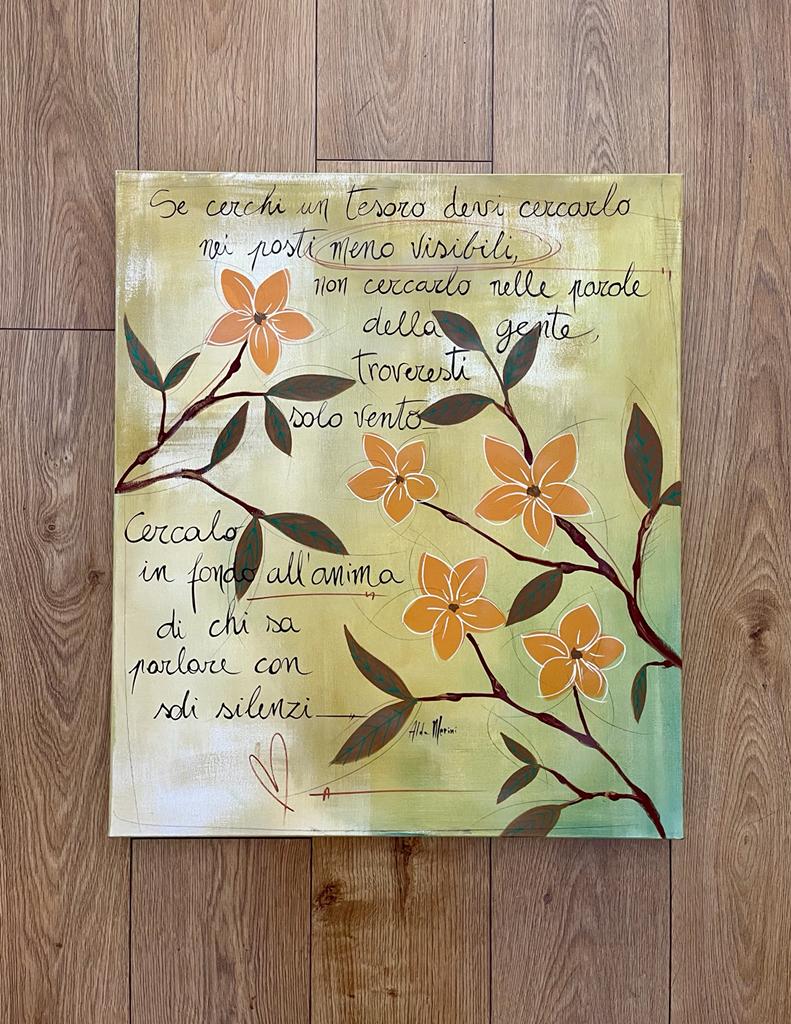 Se cerchi un tesoro devi cercarlo
nei posti meno visibili,
non cercarlo nelle parole
della gente,
troveresti
solo vento
Cercalo
in fondo all'anima
di chi sa
parlare con
soli silenzi
Alda Merini